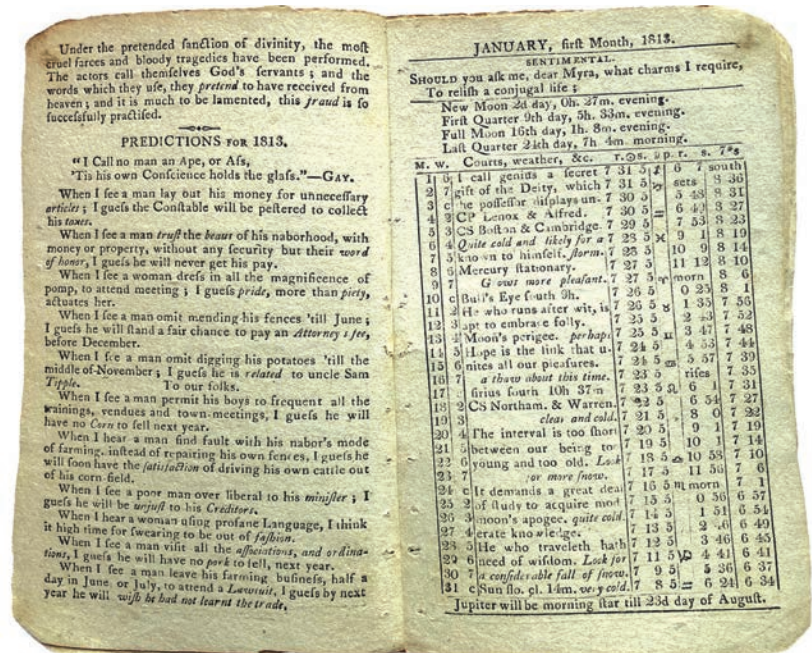 Under the pretended ſanction of divinity, the moſt
cruel farces and bloody tragedies have been performed.
The actors call themſelves God's ſervants ; and the
words which they uſe, they pretend to have received from
heaven ; and it is much to be lamented, this fraud is ſo
ſucceſsfully practiſed.
PREDICTIONS FOR 1813.
"I Call no man an Ape, or Aſs,
'Tis his own Conſcience holds the glaſs."—GAY.
When I ſee a man lay out his money for unneceſſary
articles ; I gueſs the Conſtable will be peſtered to collect
his taxes.
When I ſee a man truſt the beaus of his naborhood, with
money or property, without any ſecurity but their word
of honor, I gueſs he will never get his pay.
When I ſee a woman dreſs in all the magnificence of
pomp, to attend meeting ; I gueſs pride, more than piety,
actuates her.
When I ſee a man omit mending his fences 'till June ;
I gueſs he will ſtand a fair chance to pay an Attorney's fee,
before December.
When I ſee a man omit digging his potatoes 'till the
middle of November ; I gueſs he is related to uncle Sam
Tipple. To our folks.
When I ſee a man permit his boys to frequent all the
trainings, vendues and town-meetings, I gueſs he will
have no Corn to ſell next year.
When I hear a man find fault with his nabor's mode
of farming, inſtead of repairing his own fences, I gueſs he
will ſoon have the ſatisfaction of driving his own cattle out
of his corn-field.
When I ſee a poor man over liberal to his miniſter ; I
gueſs he will be unjuſt to his Creditors.
When I hear a woman uſing profane Language, I think
it high time for ſwearing to be out of faſhion.
When I ſee a man viſit all the aſſociations, and ordina-
tions, I gueſs he will have no pork to ſell, next year.
When I ſee a man leave his farming buſineſs, half a
day in June, or July, to attend a Lawſuit, I gueſs by next
year he will wiſh he had not learnt the trade.
JANUARY, firſt Month, 1813.
SENTIMENTAL.
SHOULD you aſk me, dear Myra, what charms I require,
To reliſh a conjugal life ;
New Moon 2d day, 0h. 27m. evening.
Firſt Quarter 9th day, 5h. 33m. evening.
Full Moon 16th day, 1h. 8m. evening.
Laſt Quarter 24th day, 7h 4m. morning.
M. W. Courts, weather, &c. r.☉s. p. r. s. 7*s
1 6 I call genius a ſecret 7 31 5 6 7 ſouth
2 7 gift of the Deity, which 7 31 5 ſets 8 36
3 c the poſſeſſor diſplays un- 7 30 5 5 48 8 31
4 2 CP Lenox & Alfred. 7 30 5 6 49 8 27
5 3 CS Boſton & Cambridge. 7 29 5 7 53 8 23
6 4 Quite cold and likely for a 7 28 5 9 1 8 19
7 5 known to himſelf. ſtorm. 7 28 5 10 9 8 14
8 6 Mercury ſtationary. 7 27 5 11 12 8 10
9 7 Grows more pleaſant. 7 27 5 morn 8 6
10 c Bull's Eye ſouth 9h. 7 26 5 0 25 8 1
11 2 He who runs after wit, is 7 26 5 1 35 7 56
12 3 apt to embrace folly. 7 25 5 2 43 7 52
13 4 Moon's perigee. perhaps 7 25 5 3 47 7 48
14 5 Hope is the link that u- 7 24 5 4 53 7 44
15 6 nites all our pleaſures. 7 24 5 5 57 7 39
16 7 a thaw about this time. 7 23 5 riſes 7 35
17 ſirius ſouth 10h 37m 7 23 5 6 1 7 31
18 2 CS Northam. & Warren. 7 22 5 6 54 7 27
19 3 clear and cold. 7 21 5 8 0 7 22
20 4 The interval is too ſhort 7 20 5 9 1 7 19
21 5 between our being too 7 19 5 10 1 7 14
22 6 young and too old. Look 7 18 5 10 58 7 10
23 7 for more ſnow. 7 17 5 11 56 7 6
24 c It demands a great deal 7 16 5 morn 7 1
25 2 of ſtudy to acquire mod 7 15 5 0 56 6 57
26 3 moon's apogee. quite cold. 7 14 5 1 51 6 54
27 4 erate knowledge. 7 13 5 2 46 6 49
28 5 He who traveleth hath 7 12 5 3 46 6 45
29 6 need of wiſdom. Look for 7 11 5 4 41 6 41
30 7 a conſiderable fall of ſnow. 7 9 5 5 36 6 37
31 c Sun ſlo. cl. 14m. very cold. 7 8 5 6 24 6 34
Jupiter will be morning ſtar till 23d day of Auguſt.